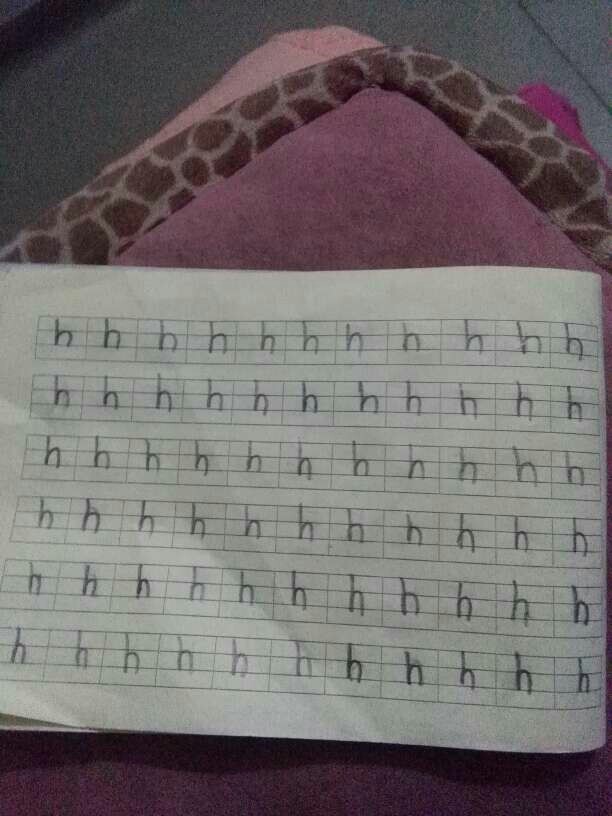 h h h h h h h h h h h
h h h h h h h h h h h
h h h h h h h h h h h
h h h h h h h h h h h
h h h h h h h h h h h
h h h h h h h h h h h